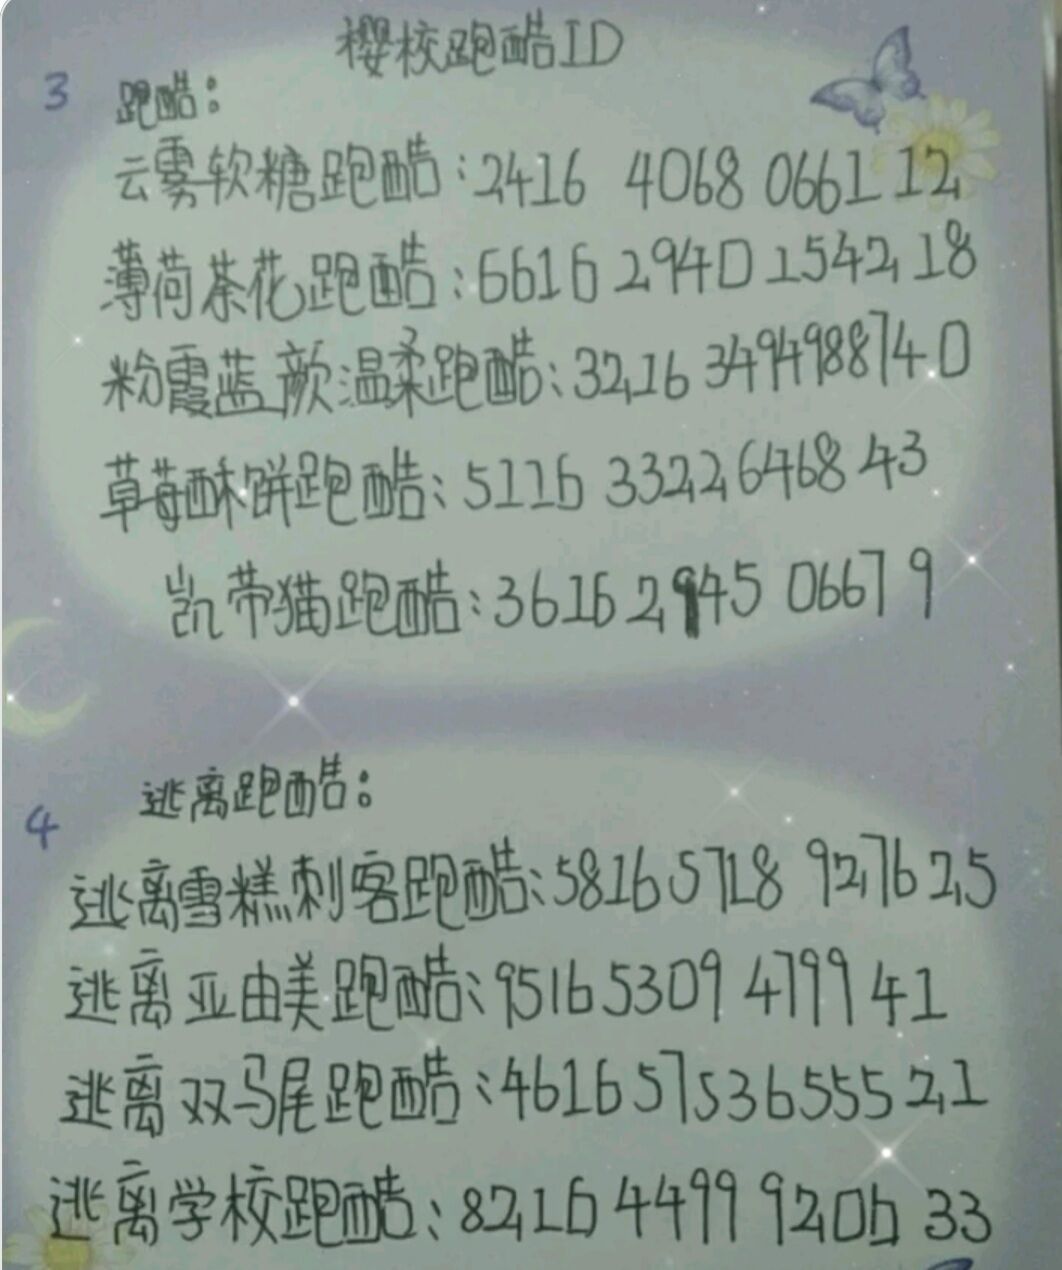 樱校跑酷ID
3 跑酷：
云雾软糖跑酷：2416 4068 0661 12
薄荷茶花跑酷：6616 2940 1542 18
粉霞蓝颜温柔跑酷：3216 3494988740
草莓酥饼跑酷：5116 33226468 43
凯蒂猫跑酷：3616 2945 0667 9
4 逃离跑酷：
逃离雪糕刺客跑酷：5816 5718 9276 25
逃离亚由美跑酷：9516 5309 4799 41
逃离双马尾跑酷：4616 57536555 21
逃离学校跑酷：8216 4499 9206 33